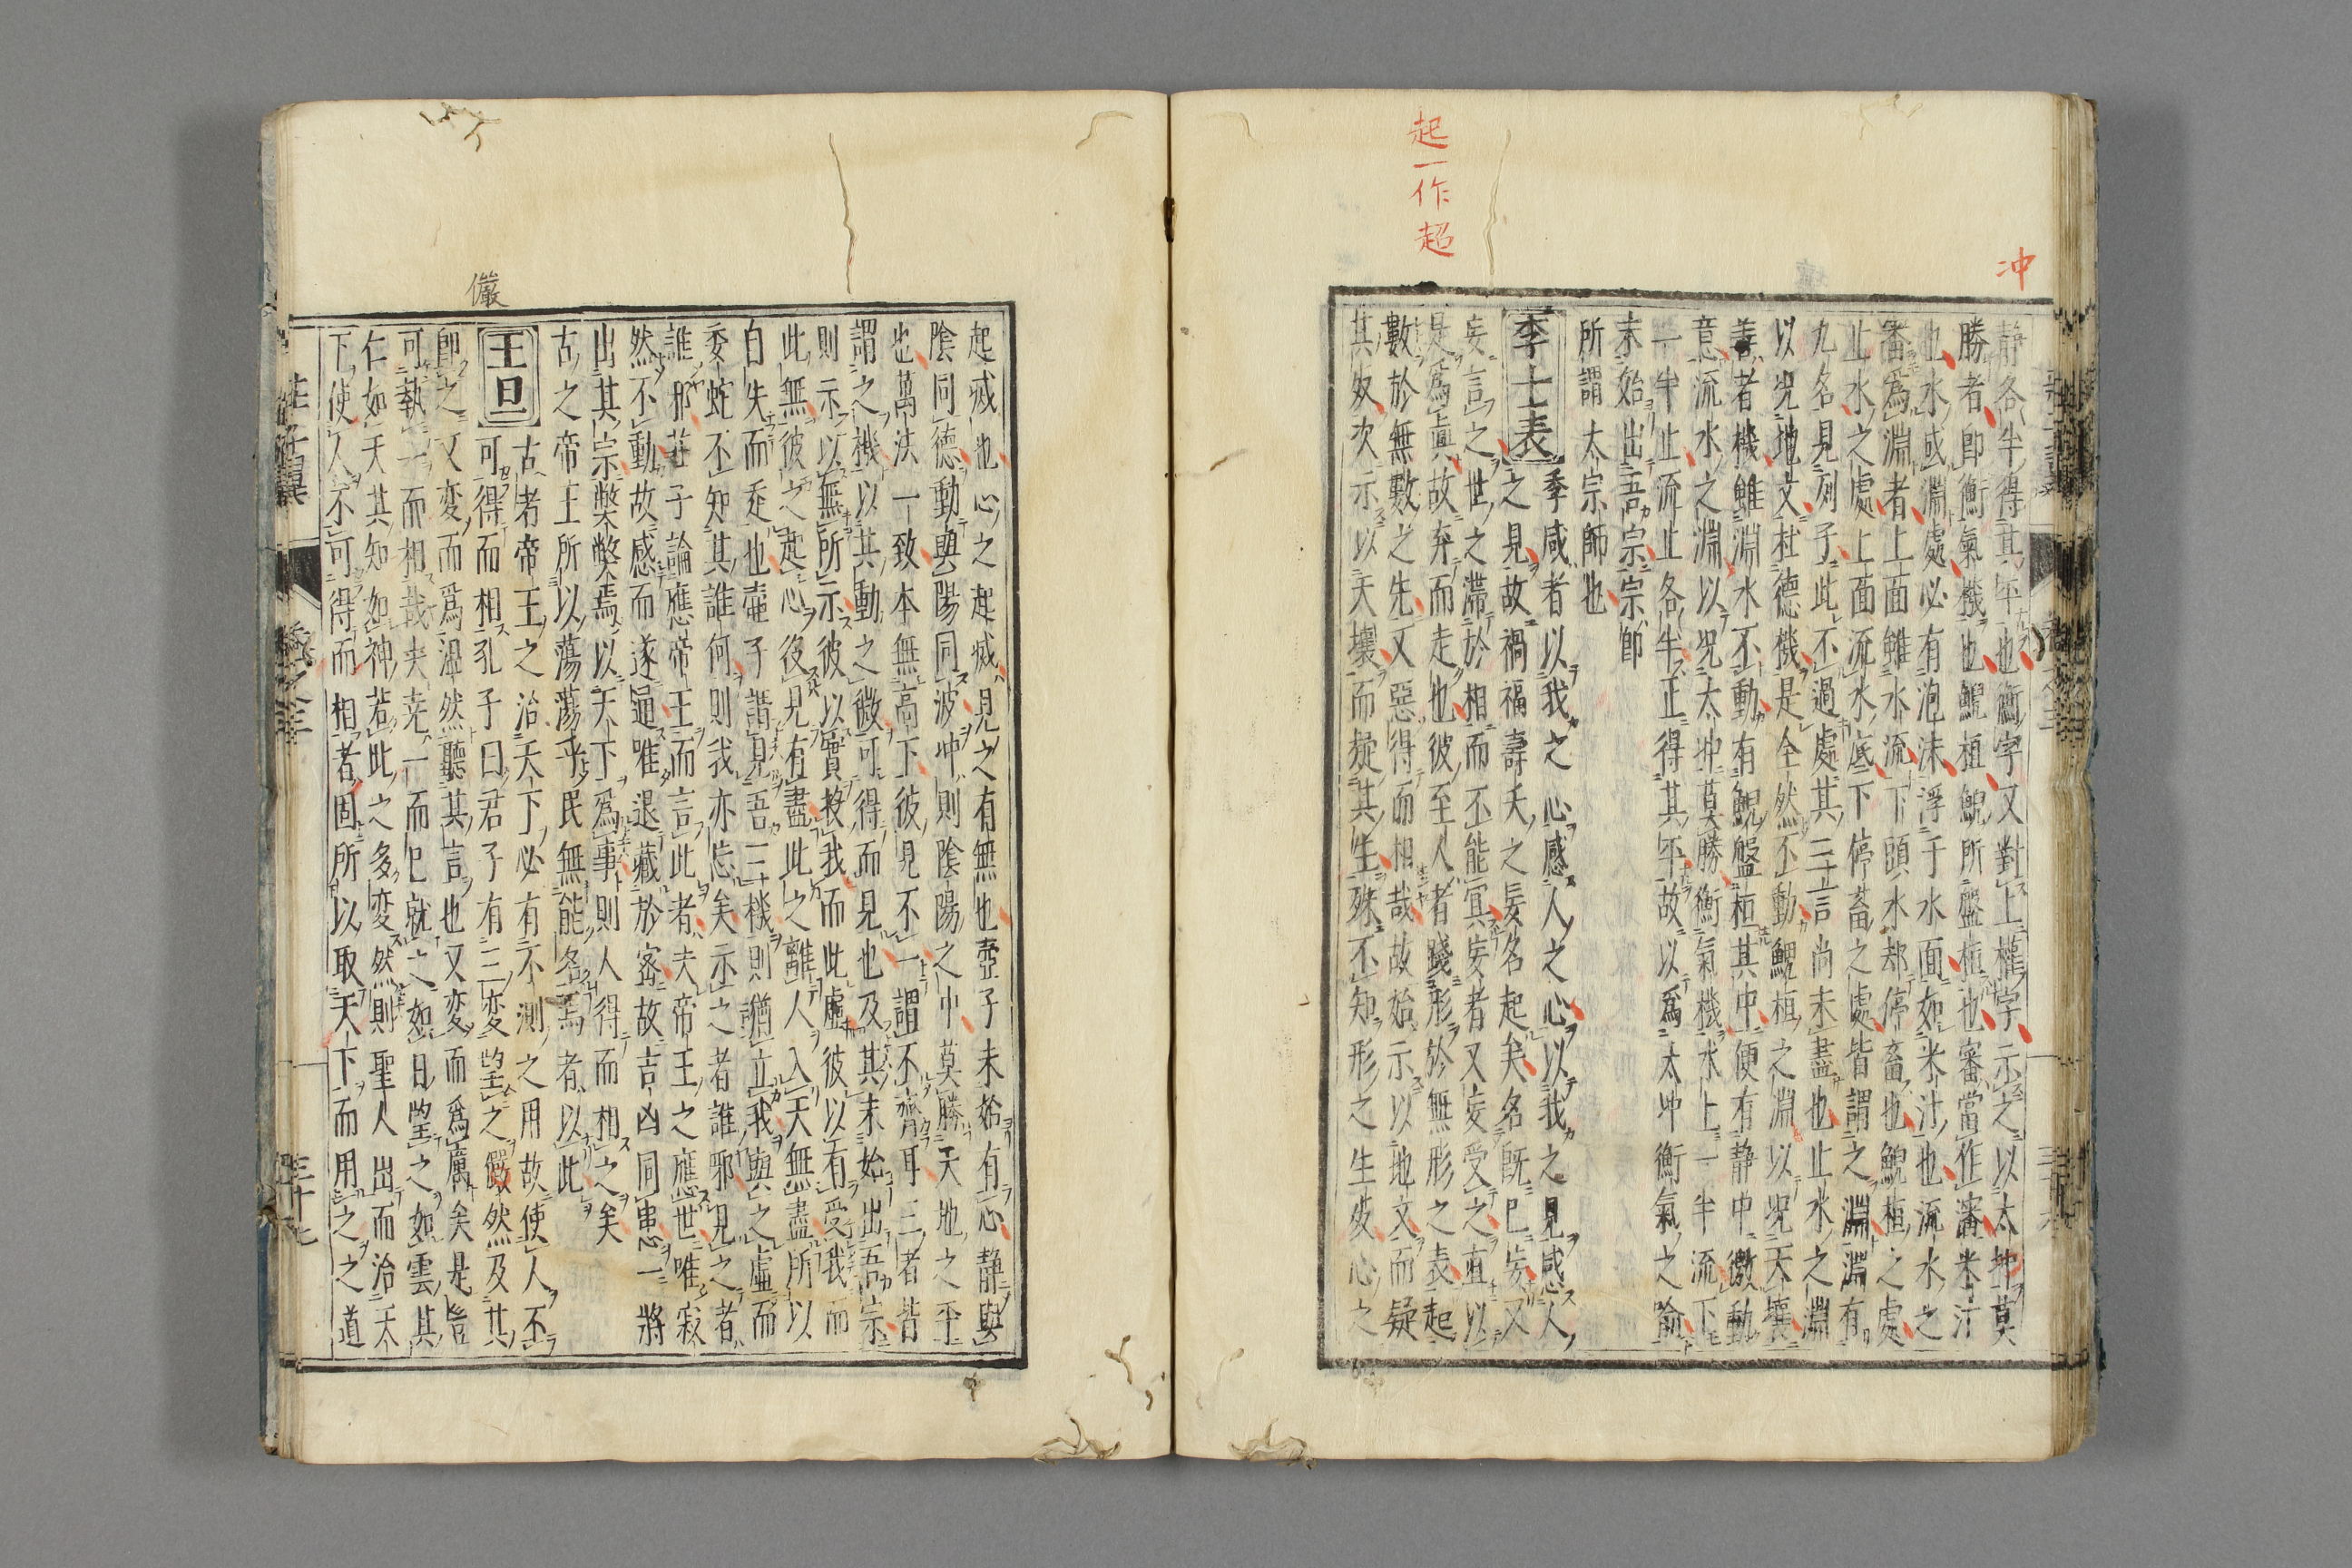 冲
起一作超
靜各半得其平也衡字又對上權字示之以太冲莫
勝者卽衡氣機也鯢桓鯢所盤桓也審當作瀋米汁
也水或淵處必有泡沫浮于水面如米汁也流水之
審爲淵者上面雖水流下頭水却停畜也鯢桓之處
止水之處上面流水底下停畜之處皆謂之淵淵有
九名見列子此不過處其三言尚未盡也止水之淵
以况地文杜德機是全然不動鯢桓之淵以况天壤
善者機雖淵水不動有鯢盤桓其中便有静中微動
意流水之淵以况太冲莫勝衡氣機水上一半流下
一半止流止各半正得其平故以爲太冲衡氣之喻
末始出吾宗宗卽
所謂太宗師也
李士表
季咸者以我之心感人之心以我之見感人
之見故禍福壽夭之妄名起矣名旣已妄又
妄言之世之滯於相而不能冥妄者又妄受之直以
是爲真故弃而走也彼至人者踐形於無形之表起
數於無數之先又惡得而相哉故始示以地文而疑
其奴次示以天壤而疑其生殊不知形之生歿心之
起㓕也心之起㓕見之有無也壺子未始有心靜與
陰同德動與陽同波冲則陰陽之中莫勝天地之平
也萬法一致本無高下彼見不一謂不齊耳三者皆
謂之機以其動之微可得而見也及其未始出吾宗
則示以無所示彼以實投我而此虛彼以有受我而
此無彼之起心後見有盡此之離人入天無盡所以
自失而走也壺子諸見吾三機則猶立我與之虛而
委蛇不知其誰何則我亦忘矣示之者誰邪見之者
誰邪莊子論應帝王而言此者夫帝王之應世唯寂
然不動故感而遂通唯退藏於密故吉凶同患一將
出其宗獘獘焉以天下爲事則人得而相之矣
古之帝王所以蕩蕩乎民無能名焉者以此
王旦
古者帝王之治天下必有不測之用故使人不
可得而相孔子曰君子有三変望之儼然及其
卽之又変而爲溫然聽其言也又変而爲厲矣是豈
可執一而相哉夫尭一而已就之如日望之如雲其
仁如天其知如神若此之多変然則聖人出而治天
下使人不可得而相者固所以取天下而用之之道
儼
莊子翼
三十七